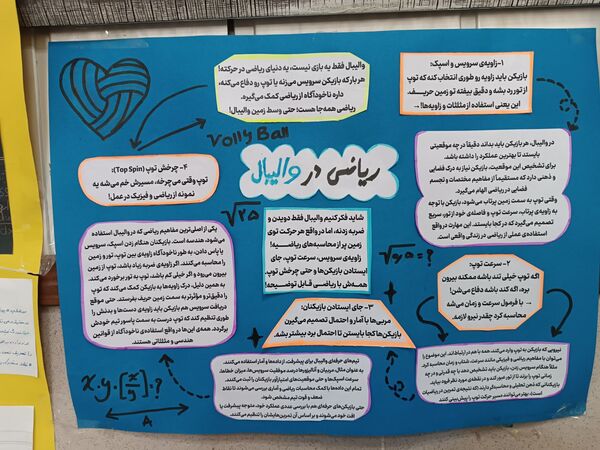 والیبال فقط یه بازی نیست، یه دنیای ریاضی در حرکته!
هر بار که بازیکن سرویس می‌زنه یا توپ رو دفاع می‌کنه،
داره ناخودآگاه از ریاضی کمک می‌گیره.
ریاضی همه‌جا هست؛ حتی وسط زمین والیبال!
۱- زاویه‌ی سرویس و اسپک:
بازیکن باید زاویه رو طوری انتخاب کنه که توپ
از تور رد بشه و دقیق بیفته تو زمین حریف.
این یعنی استفاده از مثلثات و زاویه‌ها! →
Volly Ball
ریاضی در والیبال
۴- چرخش توپ (Top Spin):
توپ وقتی می‌چرخه، مسیرش خم می‌شه یه
نمونه از ریاضی و فیزیک در عمل!
در والیبال، هر بازیکن باید بداند دقیقاً در چه موقعیتی
بایستد تا بهترین عملکرد را داشته باشد.
برای تشخیص این موقعیت، بازیکن نیاز به درک فضایی
و ذهنی دارد که مستقیماً از مفاهیم مختصات و تجسم
فضایی در ریاضی الهام می‌گیرد.
وقتی توپ به سمت زمین پرتاب می‌شود، بازیکن با توجه
به زاویه‌ی پرتاب، سرعت توپ و فاصله‌ی خود از تور، سریع
تصمیم می‌گیرد که در کجا بایستد. این مهارت در واقع
استفاده‌ی عملی از ریاضی در زندگی واقعی است.
√۲۵
شاید فکر کنیم والیبال فقط دویدن و
ضربه زدنه، اما در واقع هر حرکت توی
زمین پر از محاسبه‌های ریاضیه!
زاویه‌ی سرویس، سرعت توپ، جای
ایستادن بازیکن‌ها و حتی چرخش توپ،
همه‌ش با ریاضی قابل توضیحه!
یکی از اصلی‌ترین مفاهیم ریاضی که در والیبال استفاده
می‌شود، هندسه است. بازیکنان هنگام زدن اسپک، سرویس
یا پاس دادن، به طور ناخودآگاه زاویه‌ی بین توپ، تور و زمین
را محاسبه می‌کنند. اگر زاویه‌ی ضربه زیاد باشد، توپ از زمین
بیرون می‌رود و اگر خیلی کم باشد، توپ به تور برخورد می‌کند.
به همین دلیل، درک زاویه‌ها به بازیکن کمک می‌کند که توپ
را دقیق‌تر و مؤثرتر به سمت زمین حریف بفرستد. حتی موقع
دریافت سرویس هم بازیکن باید زاویه‌ی دست‌ها و بدنش را
طوری تنظیم کند که توپ درست به سمت پاسور تیم خودش
برگردد. همه‌ی این‌ها در واقع استفاده‌ی ناخودآگاه از قوانین
هندسی و مثلثاتی هستند.
۲- سرعت توپ:
اگه توپ خیلی تند باشه ممکنه بیرون
بره، اگه کند باشه دفاع می‌شن!
با فرمول سرعت و زمان می‌شه
محاسبه کرد چقدر نیرو لازمه.
۳- جای ایستادن بازیکنان:
مربی‌ها با آمار و احتمال تصمیم می‌گیرن
بازیکن‌ها کجا بایستن تا احتمال برد بیشتر بشه.
x.y.[x/y]=?
A
تیم‌های حرفه‌ای والیبال برای پیشرفت، از داده‌ها و آمار استفاده می‌کنند.
به عنوان مثال، مربیان و آنالیزورها درصد موفقیت سرویس‌ها، میزان خطاها،
سرعت اسپک‌ها و حتی موقعیت‌های امتیازآور بازیکنان را ثبت می‌کنند.
تمام این داده‌ها با کمک محاسبات ریاضی و آماری بررسی می‌شوند تا نقاط
ضعف و قوت تیم مشخص شود.
حتی بازیکن‌های حرفه‌ای هم با بررسی عددی عملکرد خود، متوجه پیشرفت یا
افت خود می‌شوند و بر اساس آن تمرین‌هایشان را تنظیم می‌کنند.
نیرویی که بازیکن به توپ وارد می‌کند، همه با هم در ارتباط‌اند. این موضوع را
می‌توان با مفاهیم ریاضی و فیزیکی مانند سرعت، شتاب و زمان محاسبه کرد.